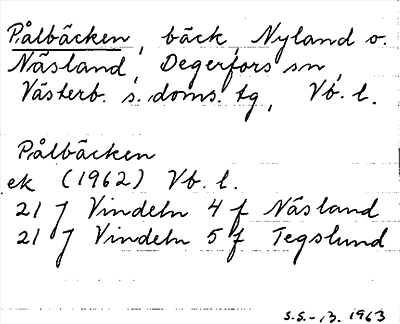 Pålbäcken, bäck, Nyland o.
Näsland, Degerfors sn,
Västerb. s. doms. tg, Vb. l.
Pålbäcken
ek (1962) Vb. l.
21 J Vindeln 4 f Näsland
21 J Vindeln 5 f Tegslund
S.S.-B. 1963